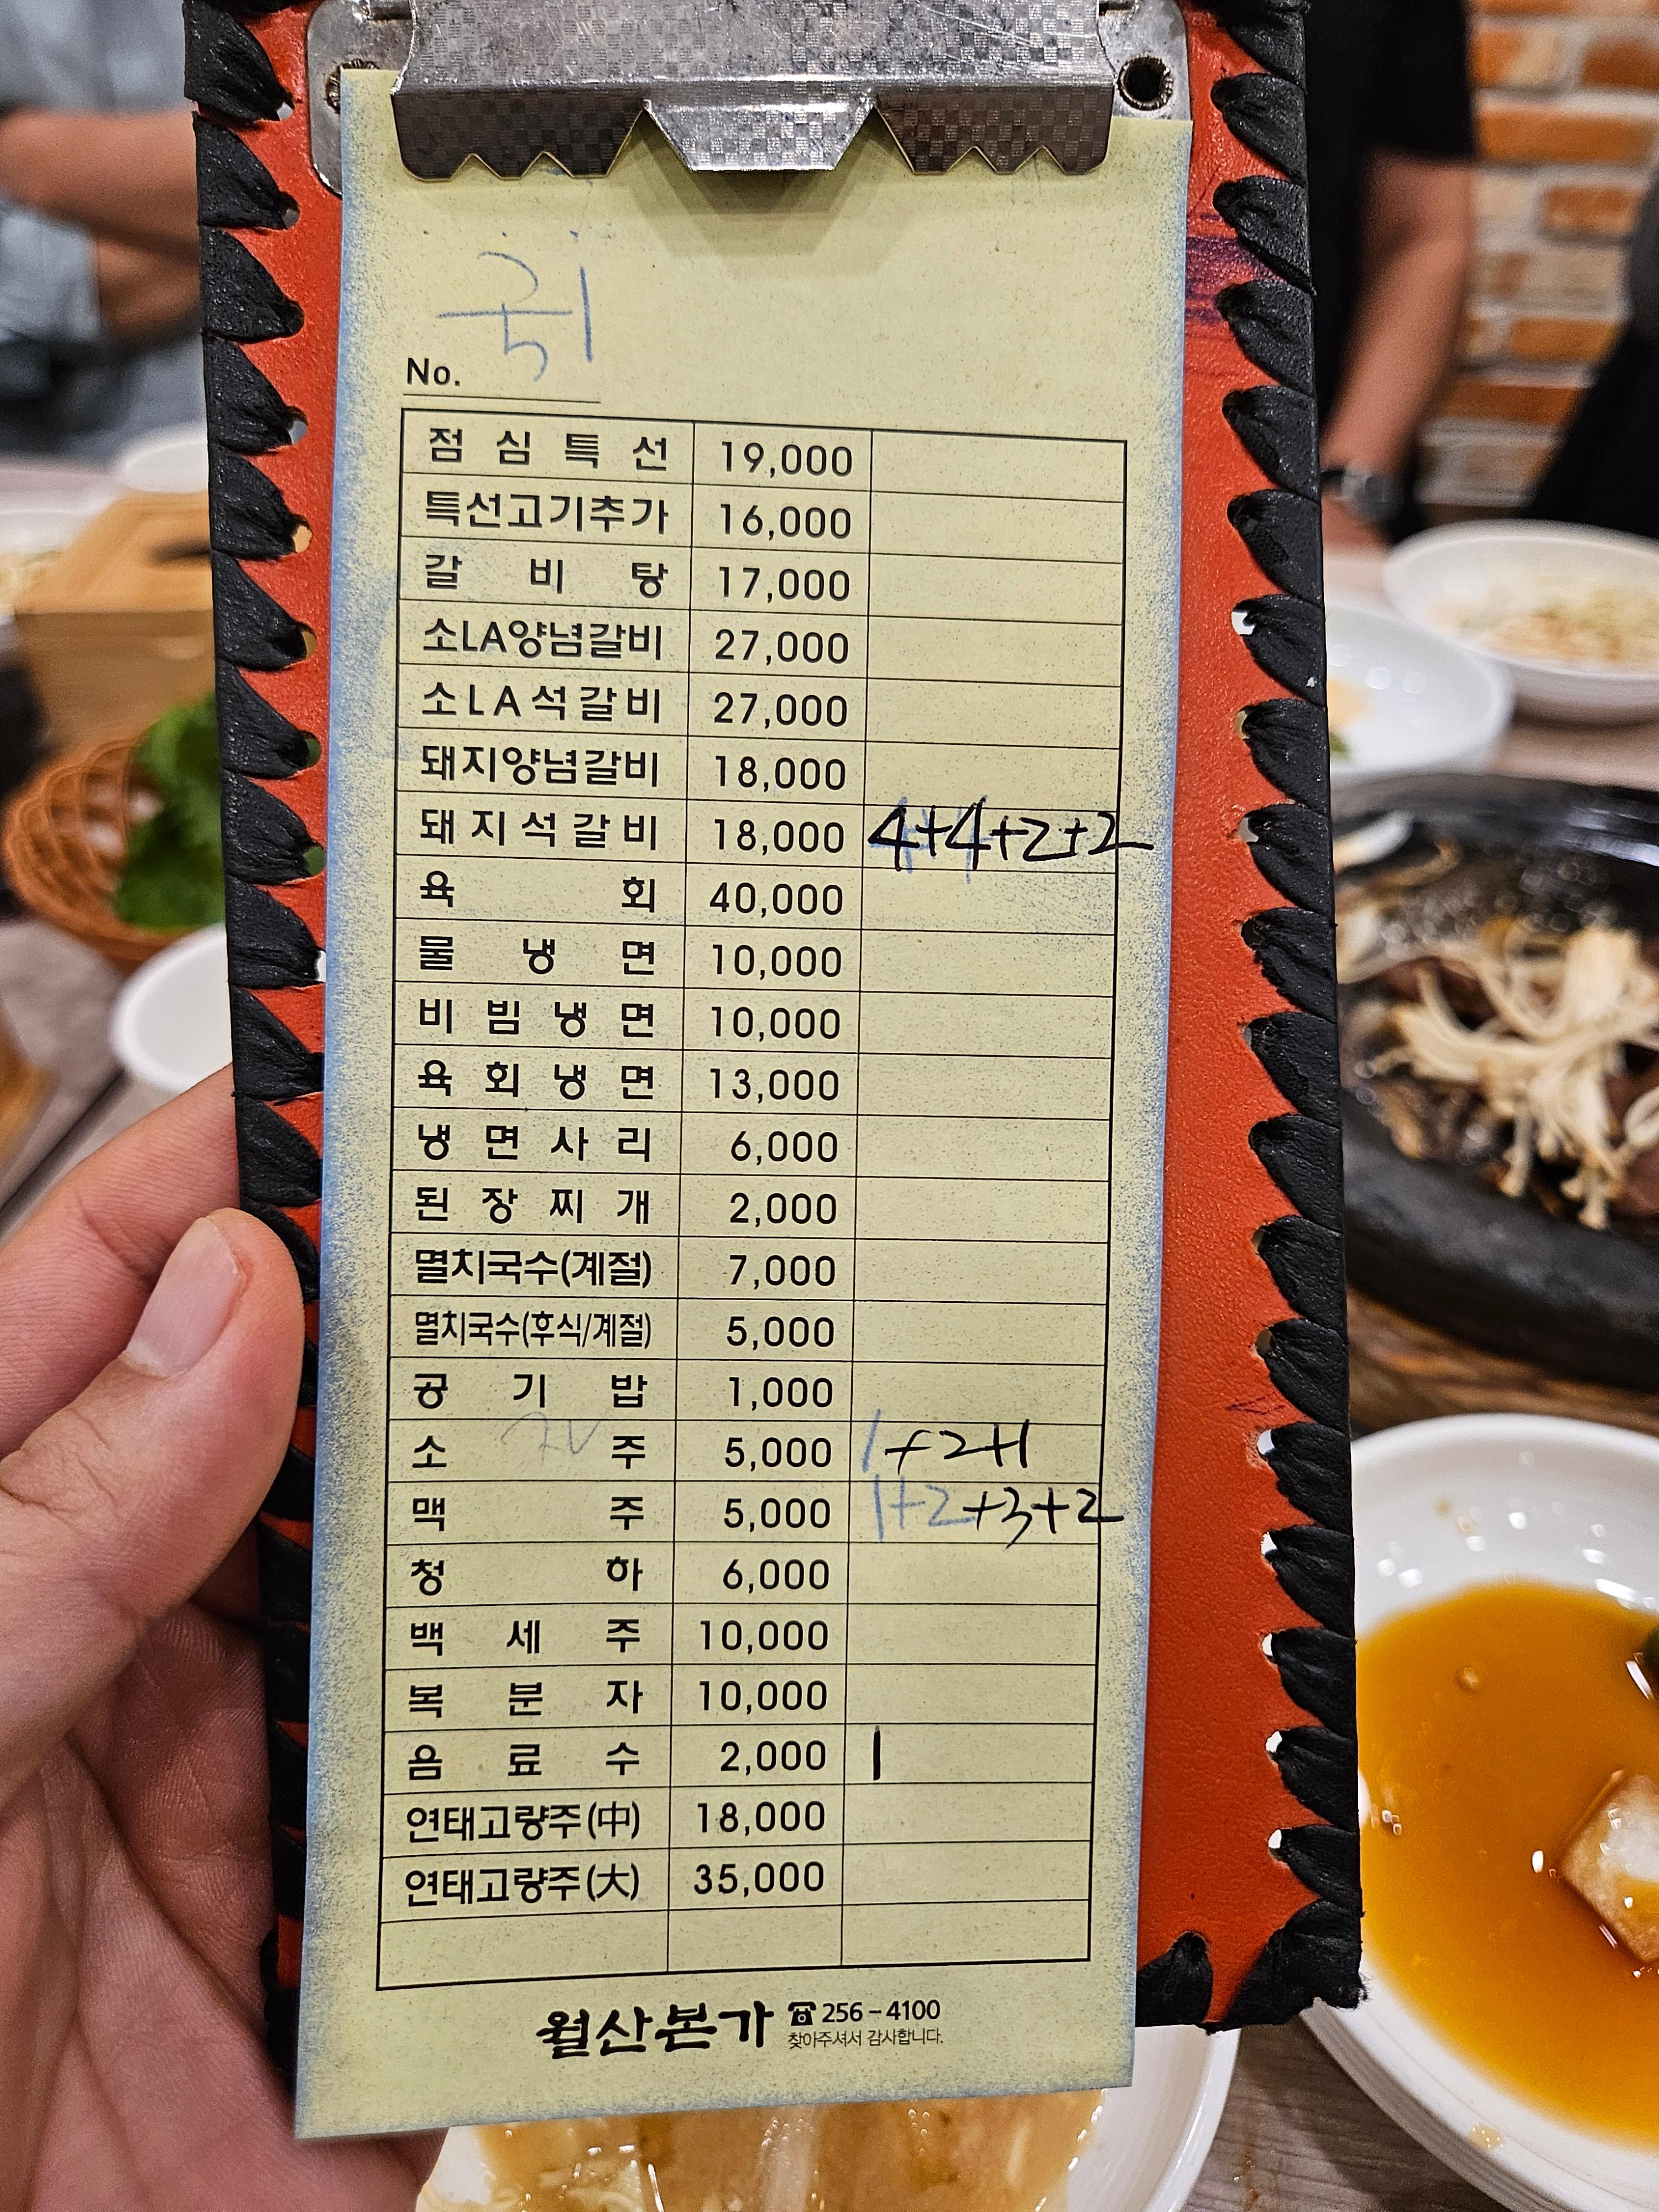 No.
점심특선 19,000
특선고기추가 16,000
갈비탕 17,000
소LA양념갈비 27,000
소LA석갈비 27,000
돼지양념갈비 18,000
돼지석갈비 18,000 4+4+2+2
육회 40,000
물냉면 10,000
비빔냉면 10,000
육회냉면 13,000
냉면사리 6,000
된장찌개 2,000
멸치국수(계절) 7,000
멸치국수(후식/계절) 5,000
공기밥 1,000
소주 5,000 1+2+1
맥주 5,000 1+2+3+2
청하 6,000
백세주 10,000
복분자 10,000
음료수 2,000 1
연태고량주(中) 18,000
연태고량주(大) 35,000
월산본가 ☎ 256-4100
찾아주셔서 감사합니다.